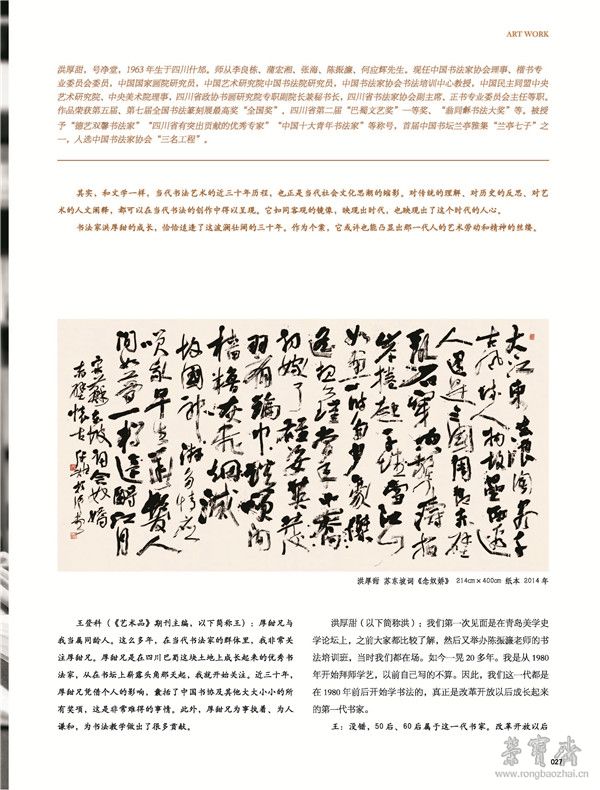 ART WORK
洪厚甜，号净堂，1963 年生于四川什邡。师从李良栋、蒲宏湘、张海、陈振濂、何应辉先生。现任中国书法家协会理事、楷书专
业委员会委员，中国国家画院研究员，中国艺术研究院中国书法院研究员，中国书法家协会书法培训中心教授，中国民主同盟中央
艺术研究院、中央美术院理事，四川省政协书画研究院专职副院长兼秘书长，四川省书法家协会副主席、正书专业委员会主任等职。
作品荣获第五届、第七届全国书法篆刻展最高奖“全国奖”、四川省第二届“巴蜀文艺奖”一等奖、“翁同龢书法大奖”等。被授
予“德艺双馨书法家”“四川省有突出贡献的优秀专家”“中国十大青年书法家”等称号，首届中国书坛兰亭雅集“兰亭七子”之
一，入选中国书法家协会“三名工程”。
其实，和文学一样，当代书法艺术的近三十年历程，也正是当代社会文化思潮的缩影。对传统的理解、对历史的反思、对艺
术的人文阐释，都可以在当代书法的创作中得以呈现。它如同客观的镜像，映现出时代，也映现出了这个时代的人心。
书法家洪厚甜的成长，恰恰适逢了这波澜壮阔的三十年。作为个案，它或许也能凸显出那一代人的艺术劳动和精神的丝缕。
大江东去浪淘尽千
古风流人物故垒西边
人道是三国周郎赤壁
乱石穿空惊涛拍
岸卷起千堆雪江山
如画一时多少豪杰
遥想公瑾当年小乔
初嫁了雄姿英发
羽扇纶巾谈笑间
樯橹灰飞烟灭
故国神游多情应
笑我早生华发人
间如梦一尊还酹江月
洪厚甜 苏东坡词《念奴娇》 214cm×400cm 纸本 2014 年
王登科（《艺术品》期刊主编，以下简称王）：厚甜兄与
我当属同龄人。这么多年，在当代书法家的群体里，我非常关
注厚甜兄。厚甜兄是在四川巴蜀这块土地上成长起来的优秀书
法家，从在书坛上崭露头角那天起，我就开始关注。近三十年，
厚甜兄凭借个人的影响，囊括了中国书协及其他大大小小的所
有奖项，这是非常难得的事情。此外，厚甜兄为事执着、为人
谦和，为书法教学做出了很多贡献。
洪厚甜（以下简称洪）：我们第一次见面是在青岛美学史
学论坛上，之前大家都比较了解，然后又举办陈振濂老师的书
法培训班，当时我们都在场。如今一晃 20 多年。我是从 1980
年开始拜师学艺，以前自己写的不算。因此，我们这一代都是
在 1980 年前后开始学书法的，真正是改革开放以后成长起来
的第一代书家。
王：没错，50 后、60 后属于这一代书家。改革开放以后
荣宝斋
027
www.rongbaozhai.cn